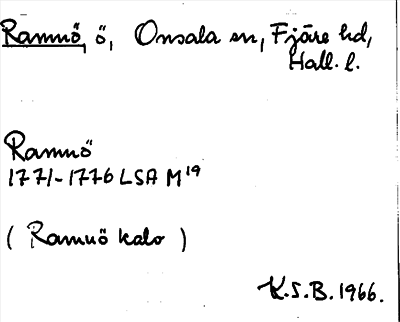 Ramnö, ö, Onsala sn, Fjäre hd,
Hall. l.
Ramnö
1771-1776 LSA M 19
( Ramnö kalv )
K.S.B. 1966.